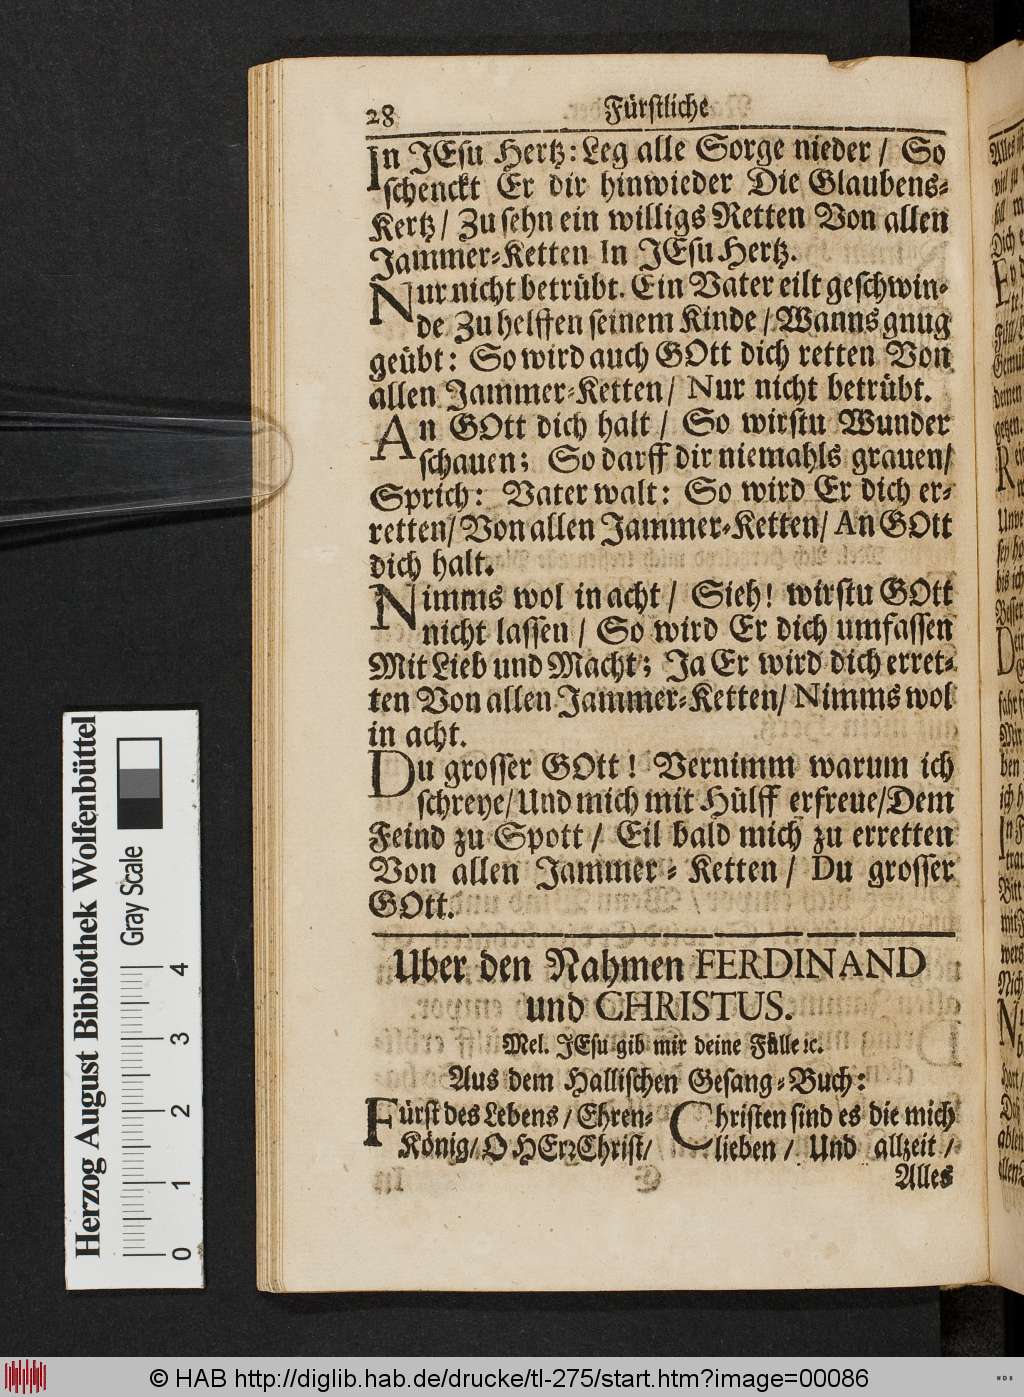 28 Fürstliche
In JEsu Hertz: Leg alle Sorge nieder / So
schenckt Er dir hinwieder Die Glaubens-
Kertz / Zu sehn ein willigs Retten Von allen
Jammer-Ketten In JEsu Hertz.
Nur nicht betrübt. Ein Vater eilt geschwin-
de Zu helffen seinem Kinde / Wanns gnug
geübt: So wird auch GOtt dich retten Von
allen Jammer-Ketten / Nur nicht betrübt.
An GOtt dich halt / So wirstu Wunder
schauen; So darff dir niemahls grauen /
Sprich: Vater walt: So wird Er dich er-
retten / Von allen Jammer-Ketten / An GOtt
dich halt.
Nimms wol in acht / Sieh! wirstu GOtt
nicht lassen / So wird Er dich umfassen
Mit Lieb und Macht; Ja Er wird dich erret-
ten Von allen Jammer-Ketten / Nimms wol
in acht.
Du grosser GOtt! Vernimm warum ich
schreye / Und mich mit Hülff erfreue / Dem
Feind zu Spott / Eil bald mich zu erretten
Von allen Jammer-Ketten / Du grosser
GOtt.
Uber den Nahmen FERDINAND
und CHRISTUS.
Mel. JEsu gib mir deine Fülle ꝛc.
Aus dem Hallischen Gesang-Buch:
Fürst des Lebens / Ehren-
König / O HErꝛ Christ /
Christen sind es die mich
lieben / Und allzeit /
Alles
Herzog August Bibliothek Wolfenbüttel
Gray Scale
0 1 2 3 4
© HAB http://diglib.hab.de/drucke/tl-275/start.htm?image=00086